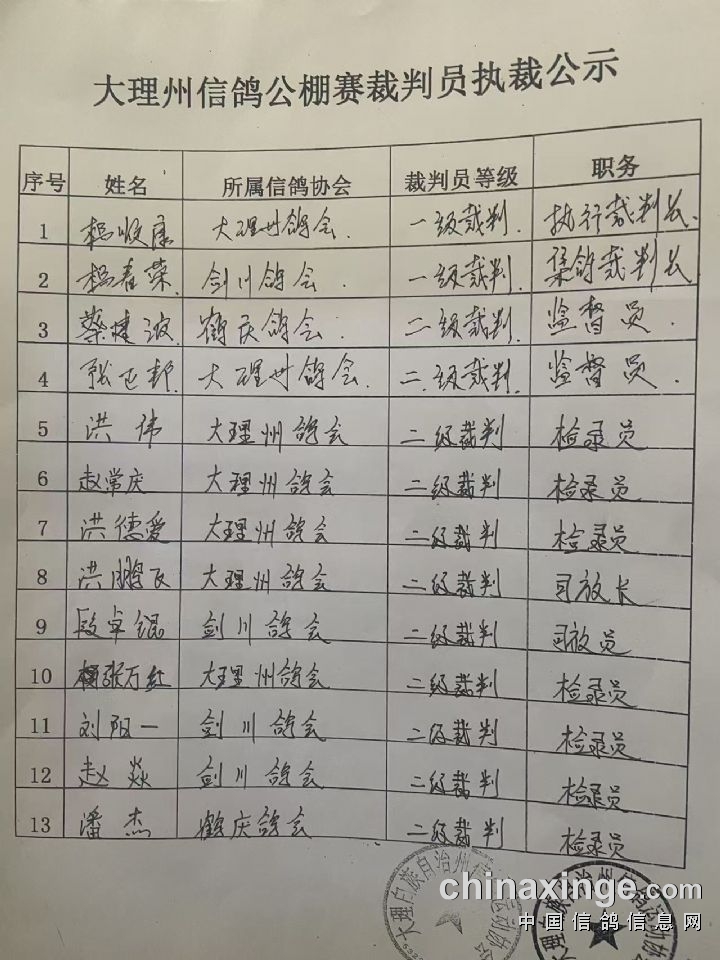 大理州信鸽公棚赛裁判员执裁公示
序号 姓名 所属信鸽协会 裁判员等级 职务
1 杨收康 大理州鸽会. 一级裁判. 执行裁判长.
2 杨春荣. 剑川鸽会. 一级裁判. 集鸽裁判长
3 鹤庆鸽会. 二级裁判. 监督员.
4 张正邦. 大理州鸽会. 二级裁判. 监督员.
5 洪伟 大理州鸽会 二级裁判 检录员
6 赵常庆 大理州鸽会 二级裁判 检录员
7 洪德爱 大理州鸽会 二级裁判 检录员
8 洪鹏飞 大理州鸽会 二级裁判 司放长
9 段卓锟 剑川鸽会 二级裁判 司放员
10 张万红 大理州鸽会 二级裁判 检录员
11 刘阳一 剑川鸽会 二级裁判 检录员
12 赵焱 剑川鸽会 二级裁判 检录员
13 潘杰 鹤庆鸽会 二级裁判 检录员
大理白族自治州信鸽运动协会
大理白族自治州信鸽运动协会
chinaxinge.com
中国信鸽信息网